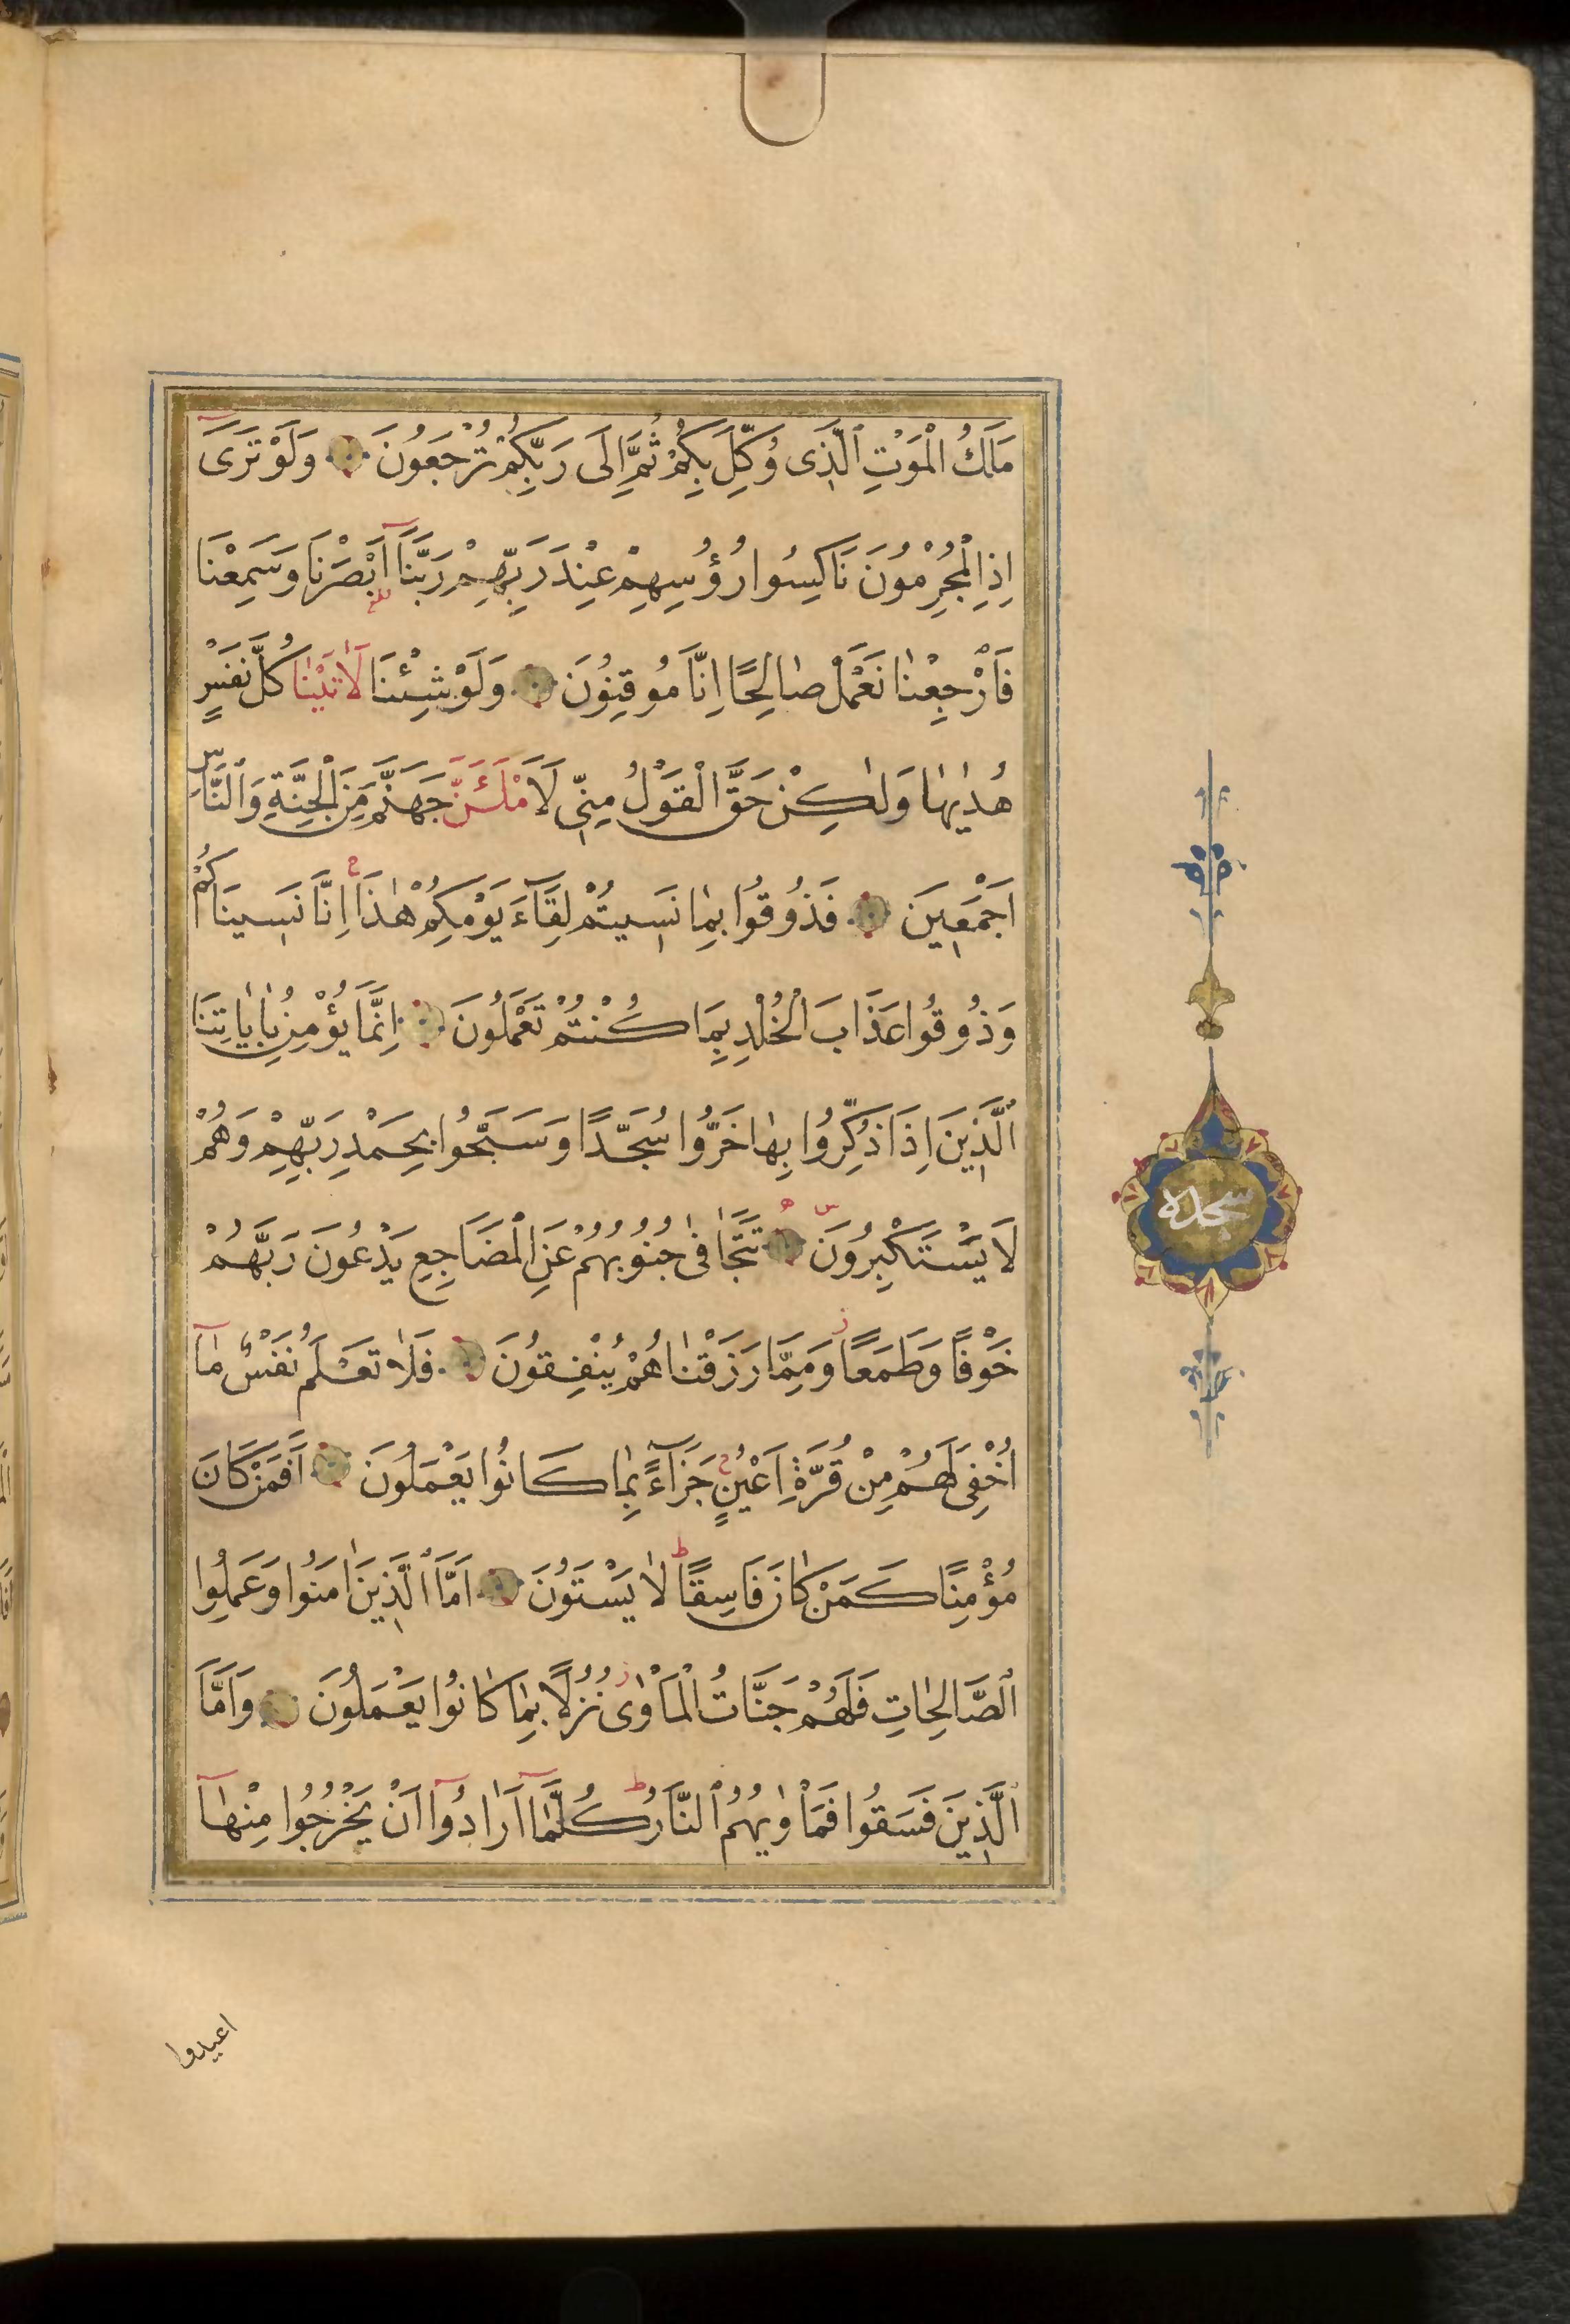 مَلَكُ الْمَوْتِ الَّذِى وُكِّلَ بِكُمْ ثُمَّ اِلَى رَبِّكُمْ تُرْجَعُونَ وَلَوْ تَرَىٓ
اِذِ الْمُجْرِمُونَ نَاكِسُوا رُؤُسِهِمْ عِنْدَ رَبِّهِمْ رَبَّنَآ اَبْصَرْنَا وَسَمِعْنَا
فَارْجِعْنٰا نَعْمَلْ صٰالِحًا اِنَّا مُوقِنُونَ وَلَوْ شِئْنَا لَاٰتَيْنٰا كُلَّ نَفْسٍ
هُدٰيهٰا وَلٰكِنْ حَقَّ الْقَوْلُ مِنّى لَاَمْلَـَٔنَّ جَهَنَّمَ مِنَ الْجِنَّةِ وَالنَّاسِ
اَجْمَعينَ فَذُوقُوا بِمٰا نَسيتُمْ لِقَآءَ يَوْمِكُمْ هٰذَا ج اِنَّا نَسينَاكُمْ
وَذُوقُوا عَذَابَ الْخُلْدِ بِمَا كُنْتُمْ تَعْمَلُونَ اِنَّمَا يُؤْمِنُ بِاٰيَاتِنَا
الَّذِينَ اِذَا ذُكِّرُوا بِهٰا خَرُّوا سُجَّدًا وَسَبَّحُوا بِحَمْدِ رَبِّهِمْ وَهُمْ
لَا يَسْتَكْبِرُونَ تَتَجَافٰى جُنُوبُهُمْ عَنِ الْمَضَاجِعِ يَدْعُونَ رَبَّهُمْ
خَوْفًا وَطَمَعًا ز وَمِمَّا رَزَقْنٰاهُمْ يُنْفِقُونَ فَلَا تَعْلَمُ نَفْسٌ مٰآ
اُخْفِىَ لَهُمْ مِنْ قُرَّةِ اَعْيُنٍ ج جَزَآءً بِمٰا كَانُوا يَعْمَلُونَ اَفَمَنْ كَانَ
مُؤْمِنًا كَمَنْ كَانَ فَاسِقًا ط لَا يَسْتَوُنَ اَمَّا الَّذِينَ اٰمَنُوا وَعَمِلُوا
الصَّالِحٰاتِ فَلَهُمْ جَنَّاتُ الْمَأْوٰى ز نُزُلًا بِمٰا كٰانُوا يَعْمَلُونَ وَاَمَّا
الَّذِينَ فَسَقُوا فَمَأْوٰيهُمُ النَّارُ ط كُلَّمَآ اَرَادُوٓا اَنْ يَخْرُجُوا مِنْهَآ
سجده
اعيدوا